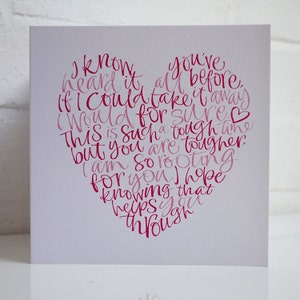 I know you've
heard it all before
if I could take it away
I would for sure
This is such a tough time
but you are tougher
I am so rooting
for you, I hope
knowing that
helps you
through